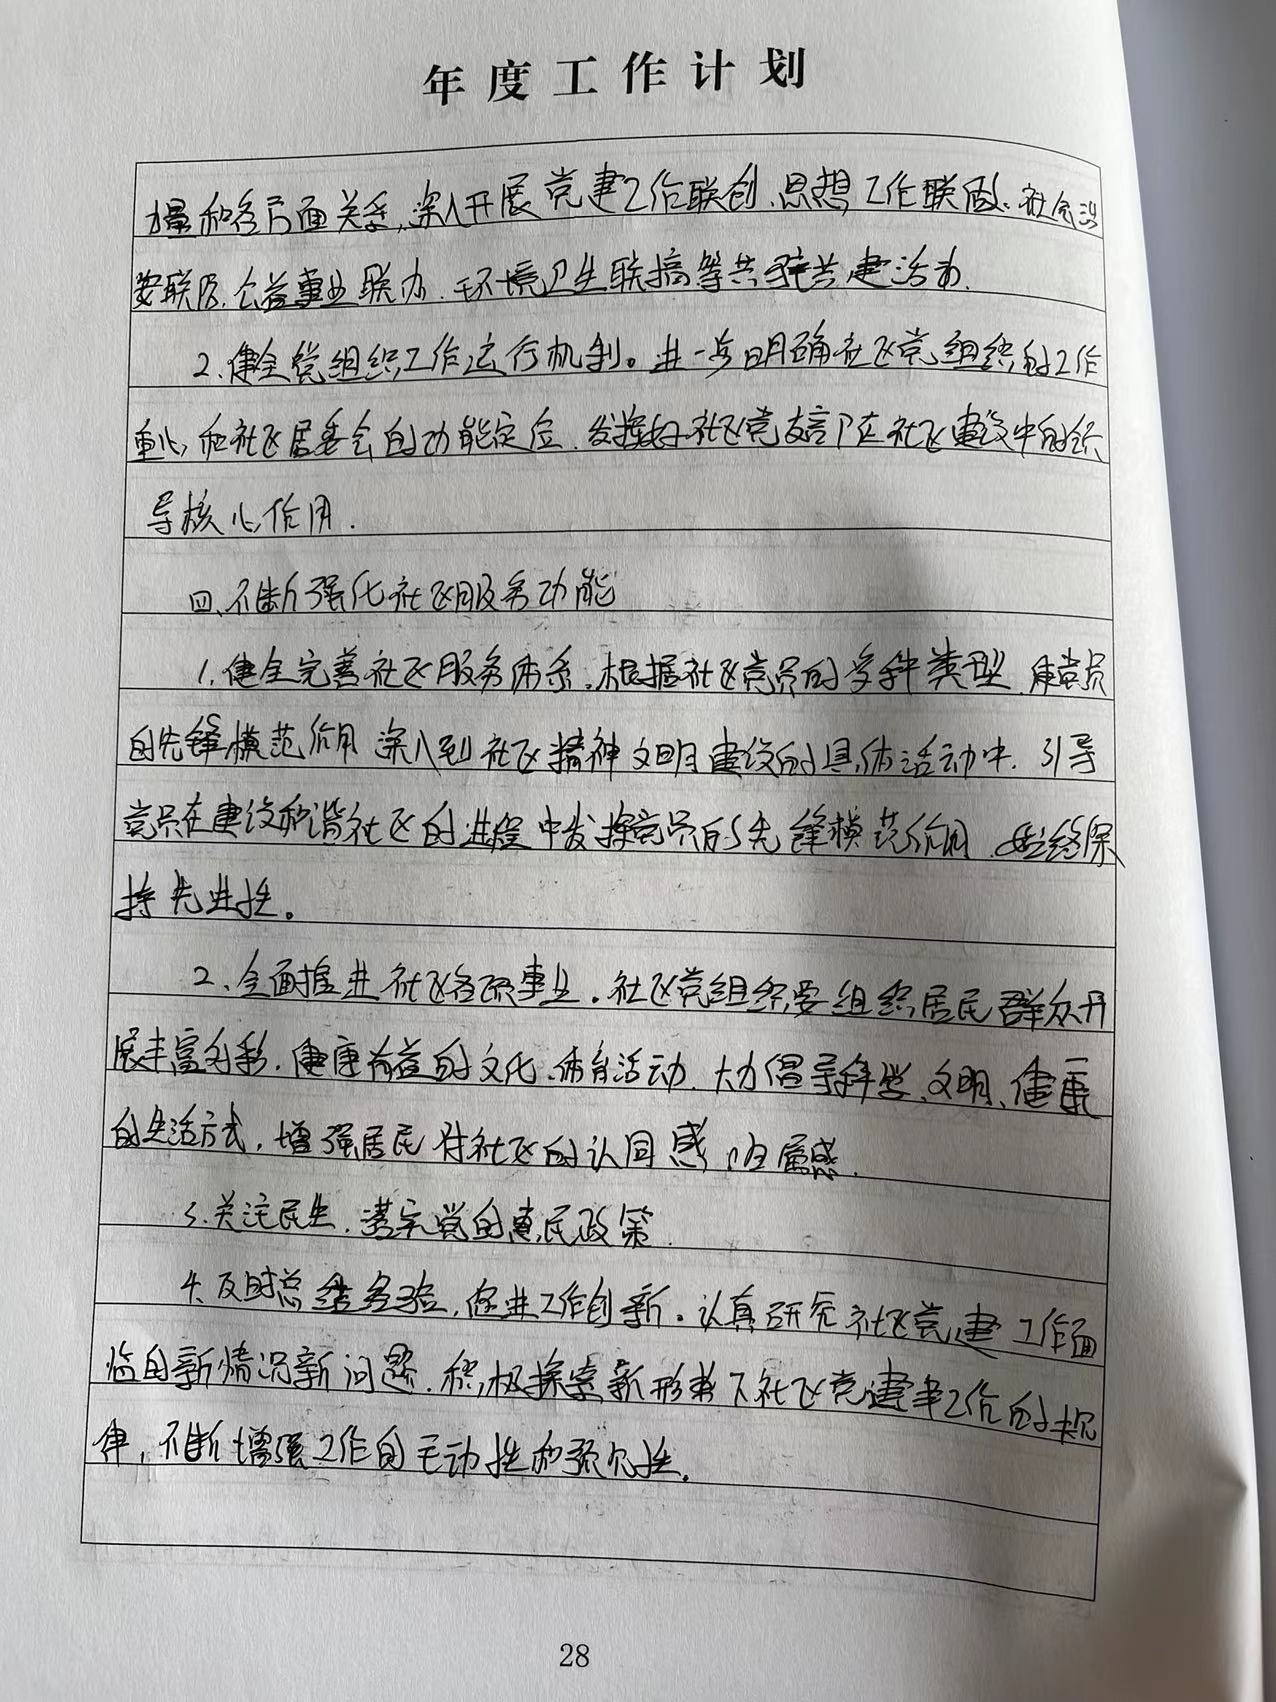 年度工作计划
力量和各方面关系,深入开展党建工作联创、思想工作联做、社会治
安联防、公益事业联办、环境卫生联搞等共驻共建活动.
2、健全党组织工作运行机制。进一步明确社区党组织的工作
重心,和社区居委会的功能定位、发挥好社区党支部在社区建设中的领
导核心作用.
四、不断强化社区服务功能
1、健全完善社区服务体系。根据社区党员的多种类型,使党员
的先锋模范作用深入到社区精神文明建设的具体活动中、引导
党员在建设和谐社区的进程中发挥党员的先锋模范作用、始终保
持先进性。
2、全面推进社区各项事业。社区党组织要组织居民群众开
展丰富多彩、健康有益的文化、体育活动、大力倡导科学、文明、健康
的生活方式,增强居民对社区的认同感、归属感.
3.关注民生,落实党的惠民政策.
4.及时总结经验,促进工作创新。认真研究社区党建工作面
临的新情况新问题、积极探索新形势下社区党建工作的规
律,不断增强工作的主动性和预见性。
28